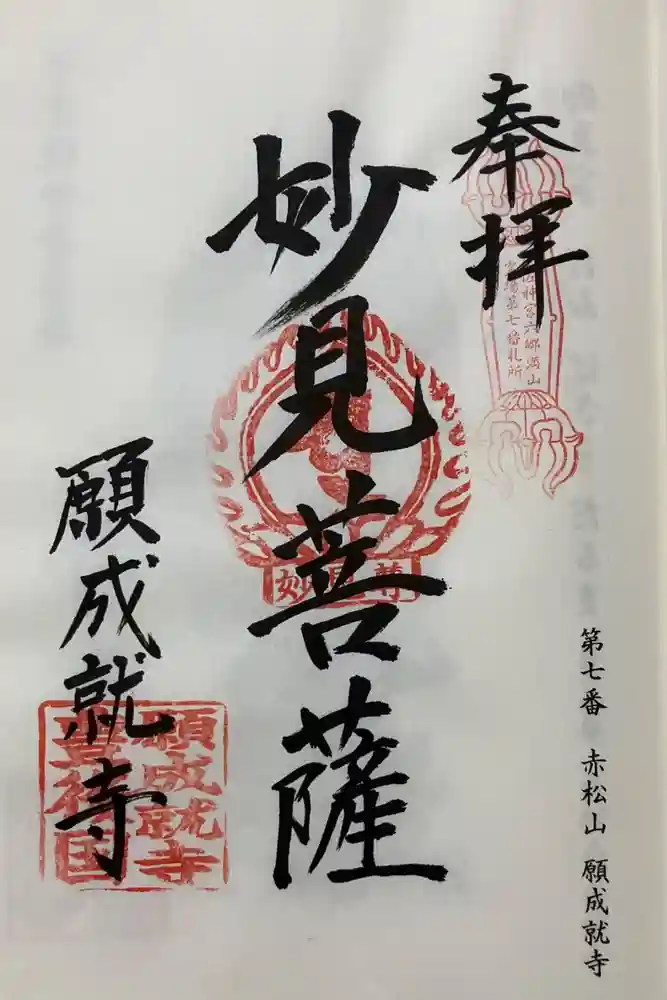 奉拝
霊場第七番札所
第七番 赤松山 願成就寺
妙見菩薩
妙見尊
願成就寺
願成就寺